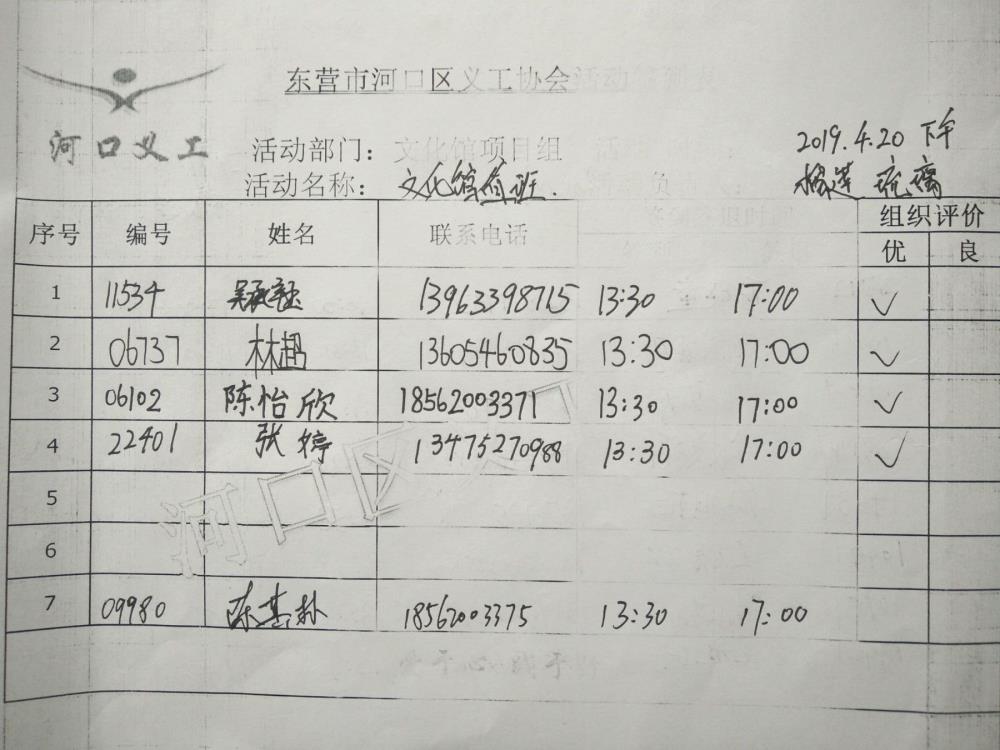 东营市河口区义工协会活动签到表
河口义工
活动部门：文化馆项目组 活
2019.4.20 下午
活动名称：文化馆值班. 负
琉璃
序号 编号 姓名 联系电话 组织评价
优 良
1 11534 13963398715 13:30 17:00 ✓
2 06737 林超 13605460835 13:30 17:00 ✓
3 06102 陈怡欣 18562003371 13:30 17:00 ✓
4 22401 张婷 13475270988 13:30 17:00 ✓
5
6
7 09980 陈其朴 18562003375 13:30 17:00
河口区义工